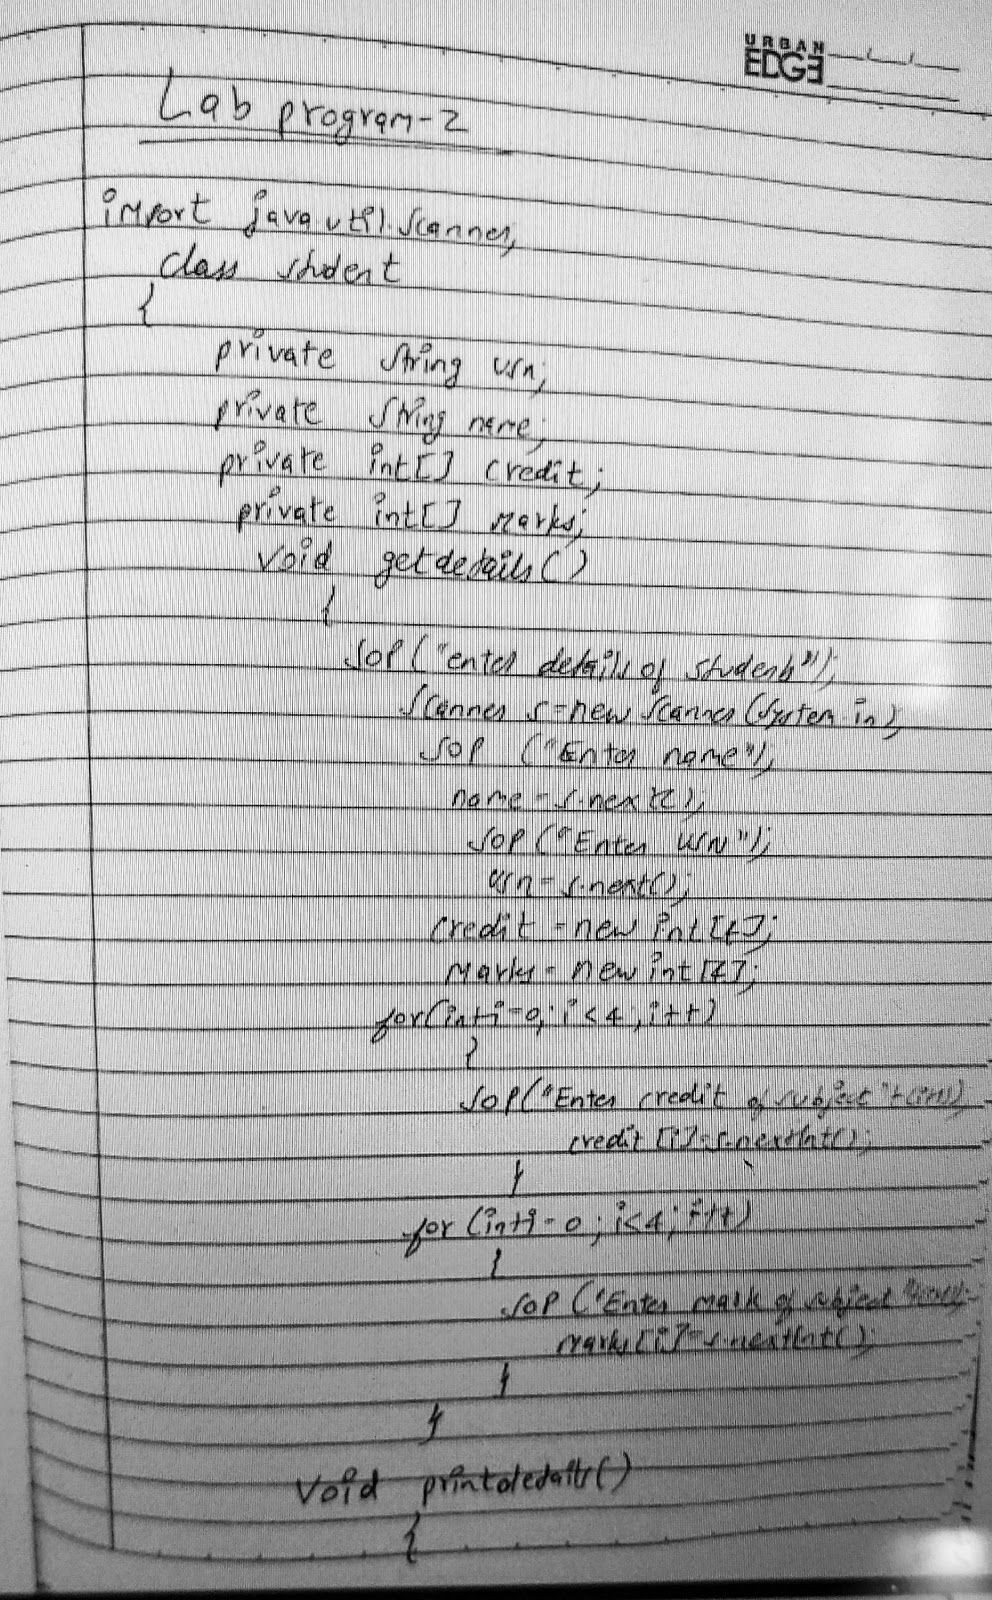 URBAN
EDGE
Lab program-2
import java.util.Scanner;
class student
{
private String usn;
private String name;
private int[] credit;
private int[] marks;
void getdetails()
{
SOP("enter details of students");
Scanner s=new Scanner(System.in);
SOP ("Enter name");
name=s.next();
SOP("Enter USN");
usn=s.next();
credit=new int[4];
marks=new int[4];
for(int i=0; i<4; i++)
{
SOP("Enter credit of subject"+(i+1));
credit[i]=s.nextInt();
}
for (int i=0; i<4; i++)
{
SOP ("Enter mark of subject
marks[i]=s.nextInt();
}
}
void printdedails()
{